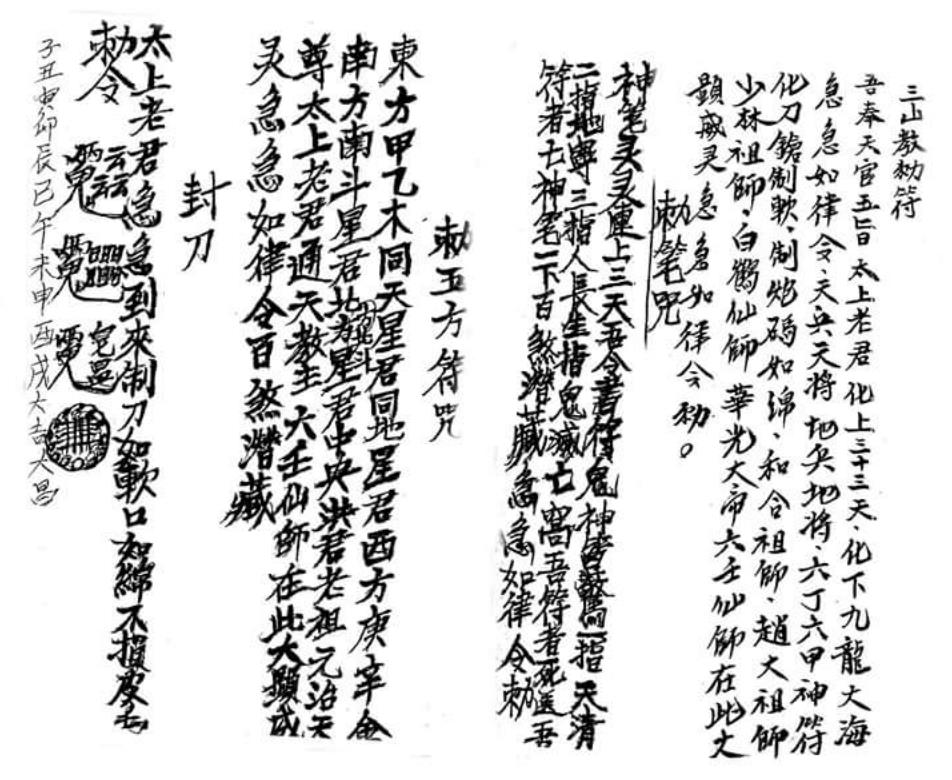 三山教勅符
吾奉天官五旨太上老君化上三十三天、化下九龍大海
急急如律令、天兵天將、地兵地將、六丁六甲神符
化刀鎗制軟、制炮碼如綿、和合祖師、趙大祖師
少林祖師、白鶴仙師華光大帝六壬仙師在此大
顯威灵急急如律令勅。
勅筆咒
神筆灵灵運上三天吾令書符鬼神皆驚一指天清
二指地寧三指人長生指鬼滅亡窩吾符者死送吾
符者亡神笔一下百煞潛藏急急如律令勅
勅五方符咒
東方甲乙木同天星君同地星君西方庚辛金
南方南斗星君北方星君中央洪君老祖元治天
尊太上老君通天教主六壬仙師在此大顯威
灵急急如律令百煞潛藏
封刀
太上老君急急到來制刀如軟口如綿不損皮毛
勅令
子丑寅卯辰巳午未申酉戌大吉大昌